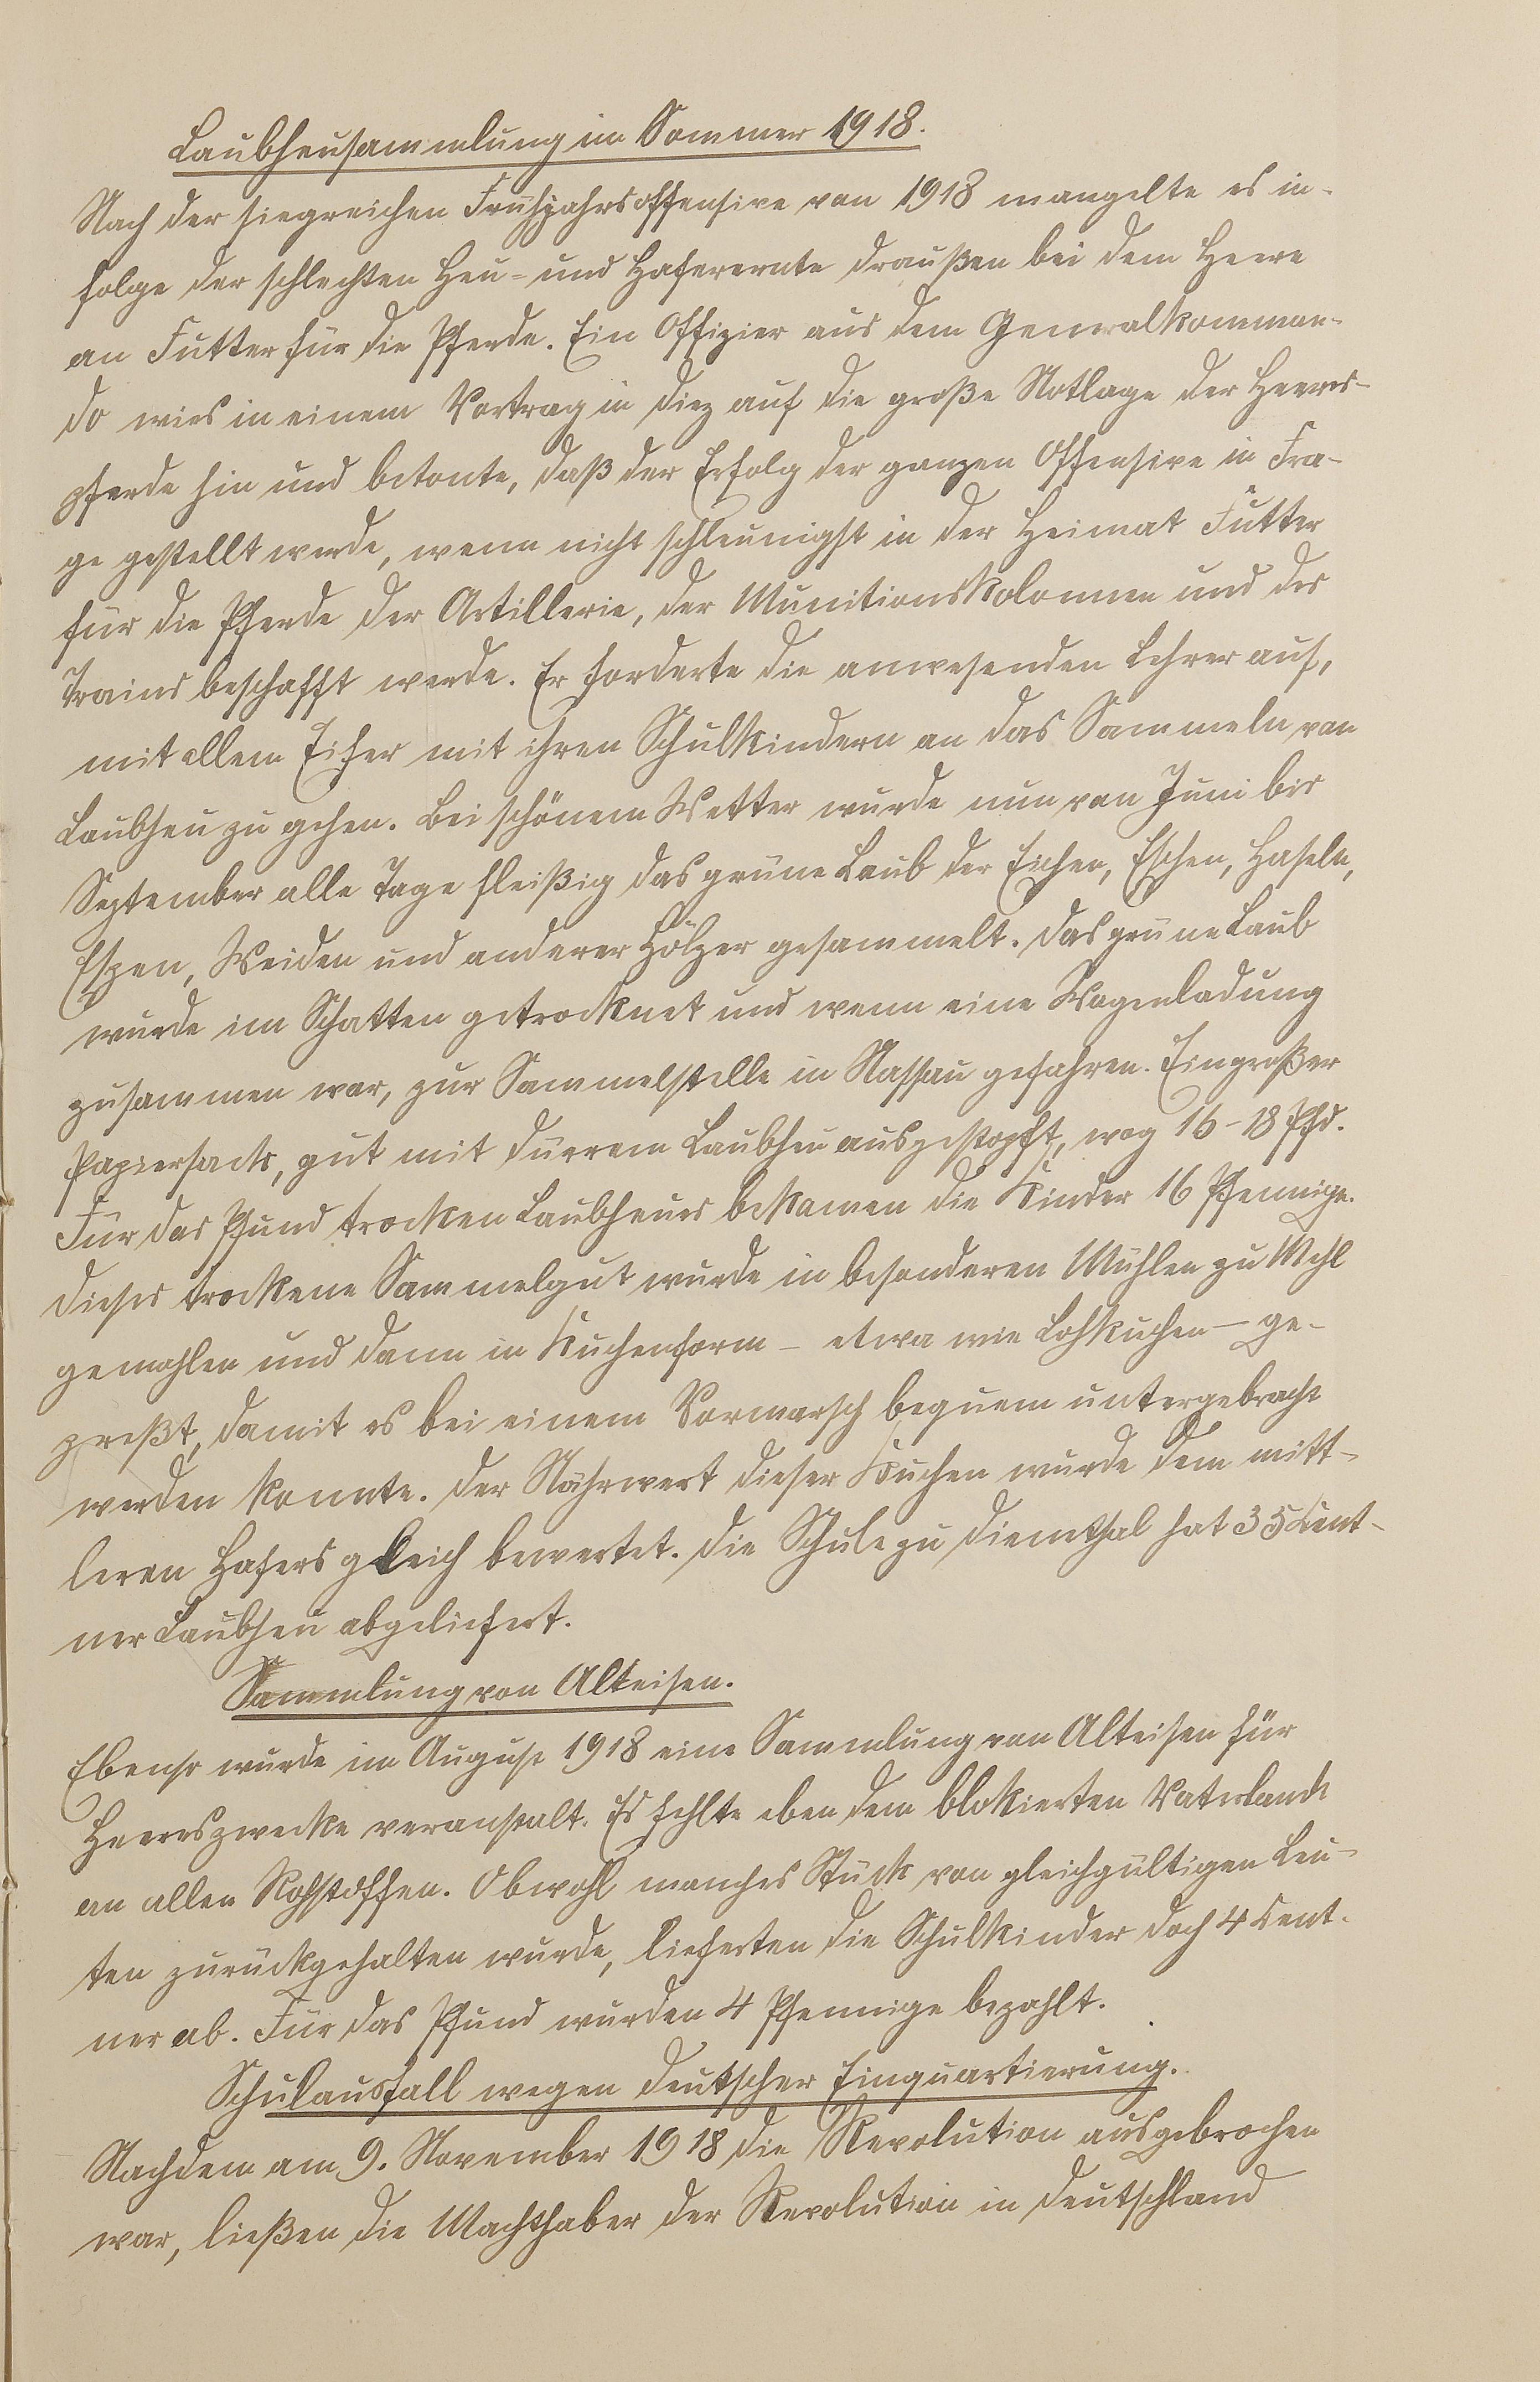 Laubheusammlung im Sommer 1918.
Nach der siegreichen Frühjahrsoffensive von 1918 mangelte es in-
folge der schlechten Heu- und Haferernte draußen bei dem Heere
an Futter für die Pferde. Ein Offizier aus dem Generalkomman-
do wies in einem Vortrag in Diez auf die große Notlage der Heeres-
pferde hin und betonte, daß der Erfolg der ganzen Offensive in Fra-
ge gestellt werde, wenn nicht schleunigst in der Heimat Futter
für die Pferde der Artillerie, der Munitionskolonnen und des
Trains beschafft werde. Er forderte die anwesenden Lehrer auf,
mit allem Eifer mit ihren Schulkindern an das Sammeln von
Laubheu zu gehen. Bei schönem Wetter wurde nun von Juni bis
September alle Tage fleißig das grüne Laub der Eichen, Eschen, Haseln,
Espen, Weiden und anderer Hölzer gesammelt. Das grüne Laub
wurde im Schatten getrocknet und wenn eine Wagenladung
zusammen war, zur Sammelstelle in Nassau gefahren. Ein großer
Papiersack, gut mit dürrem Laubheu ausgestopft, wog 16-18 Pfd.
Für das Pfund trocken Laubheues bekamen die Kinder 16 Pfennige.
Dieses trockene Sammelgut wurde in besonderen Mühlen zu Mehl
gemahlen und dann in Kuchenform - etwa wie Lohkuchen - ge-
preßt, damit es bei einem Vormarsch bequem untergebracht
werden konnte. Der Nährwert dieser Kuchen wurde dem mitt-
leren Hafers gleich bewertet. Die Schule zu Dienethal hat 35 Cent-
ner Laubheu abgeliefert.
Sammlung von Alteisen.
Ebenso wurde im August 1918 eine Sammlung von Alteisen für
Heereszwecke veranstalt. Es fehlte eben dem blokierten Vaterlande
an allen Rohstoffen. Obwohl manches Stück von gleichgültigen Leu-
ten zurückgehalten wurde, lieferten die Schulkinder doch 4 Cent-
ner ab. Für das Pfund wurden 4 Pfennige bezahlt.
Schulausfall wegen deutscher Einquartierung.
Nachdem am 9. November 1918 die Revolution ausgebrochen
war, ließen die Machthaber der Revolution in Deutschland